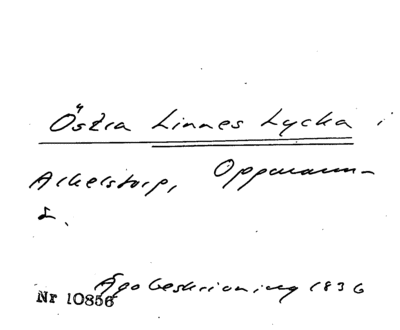 Östra Linnes Lycka i
Arkelstorp, Oppmanna-
s.
Ägobeskrivning 1836
Nr 10856